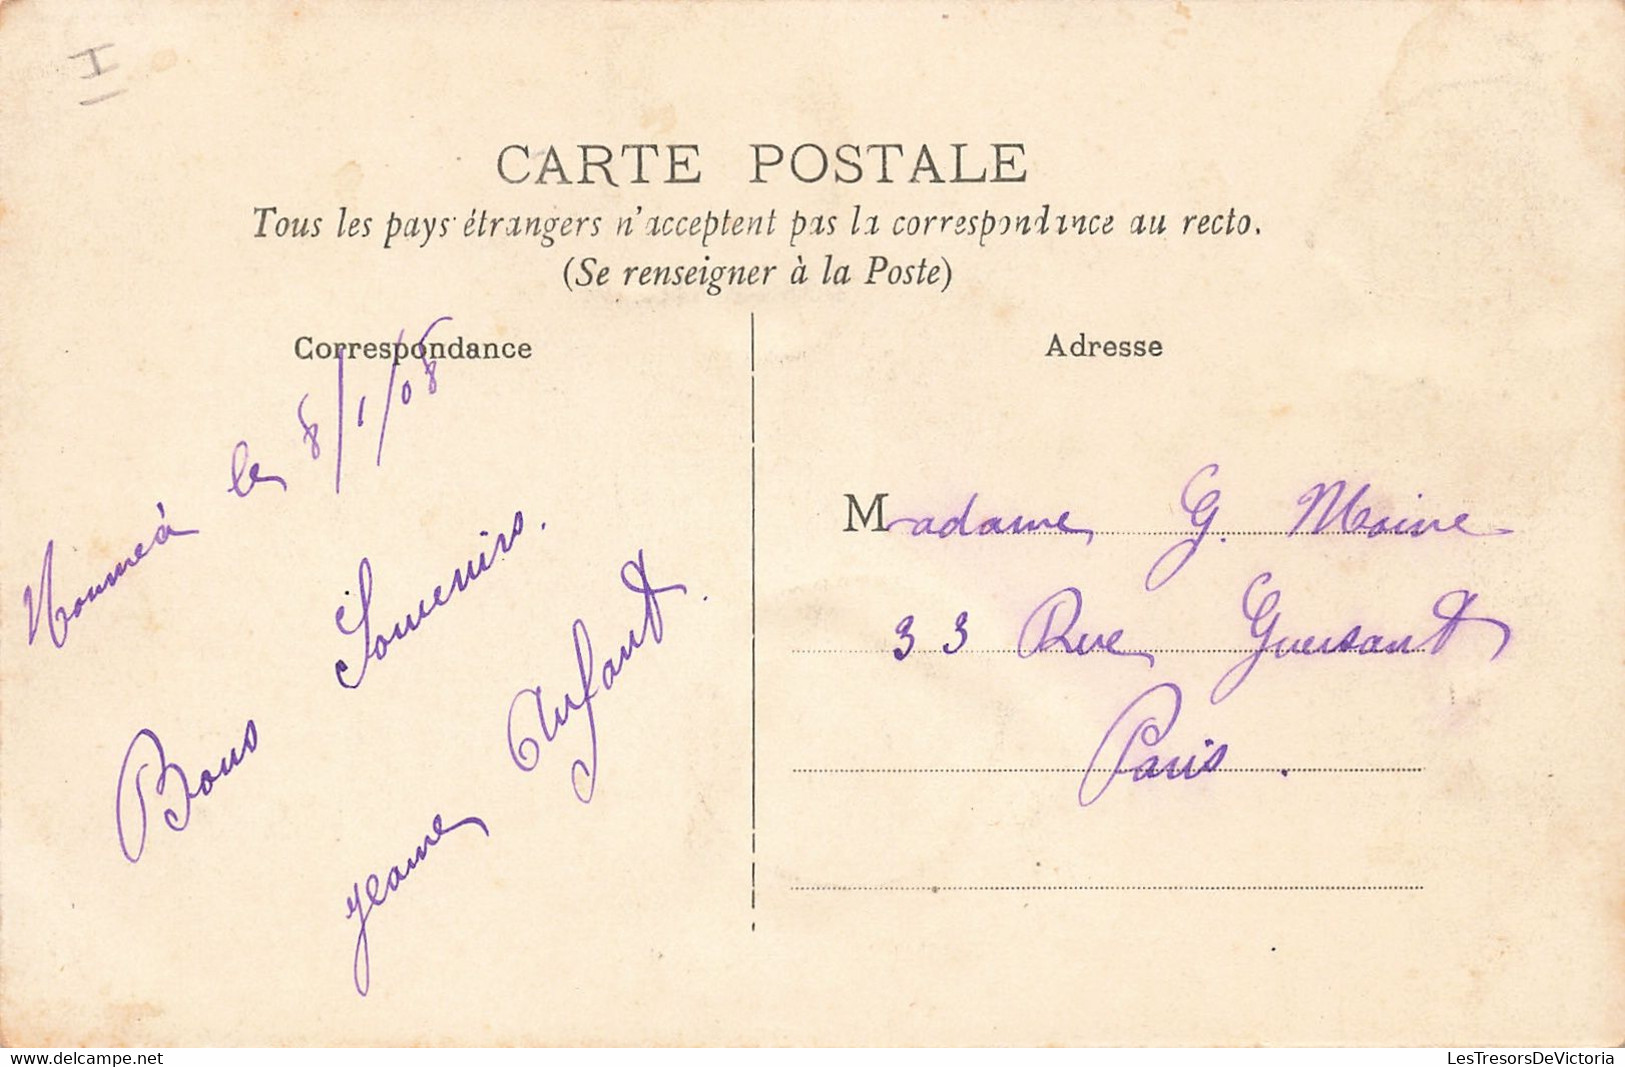 I
CARTE POSTALE
Tous les pays étrangers n'acceptent pas la correspondance au recto.
(Se renseigner à la Poste)
Correspondance
Nouméa le 8/1/08
Bons Souvenirs.
Jeanne Enfant.
Adresse
Madame G. Moine
33 Rue Guersant
Paris.
www.delcampe.net
LesTresorsDeVictoria